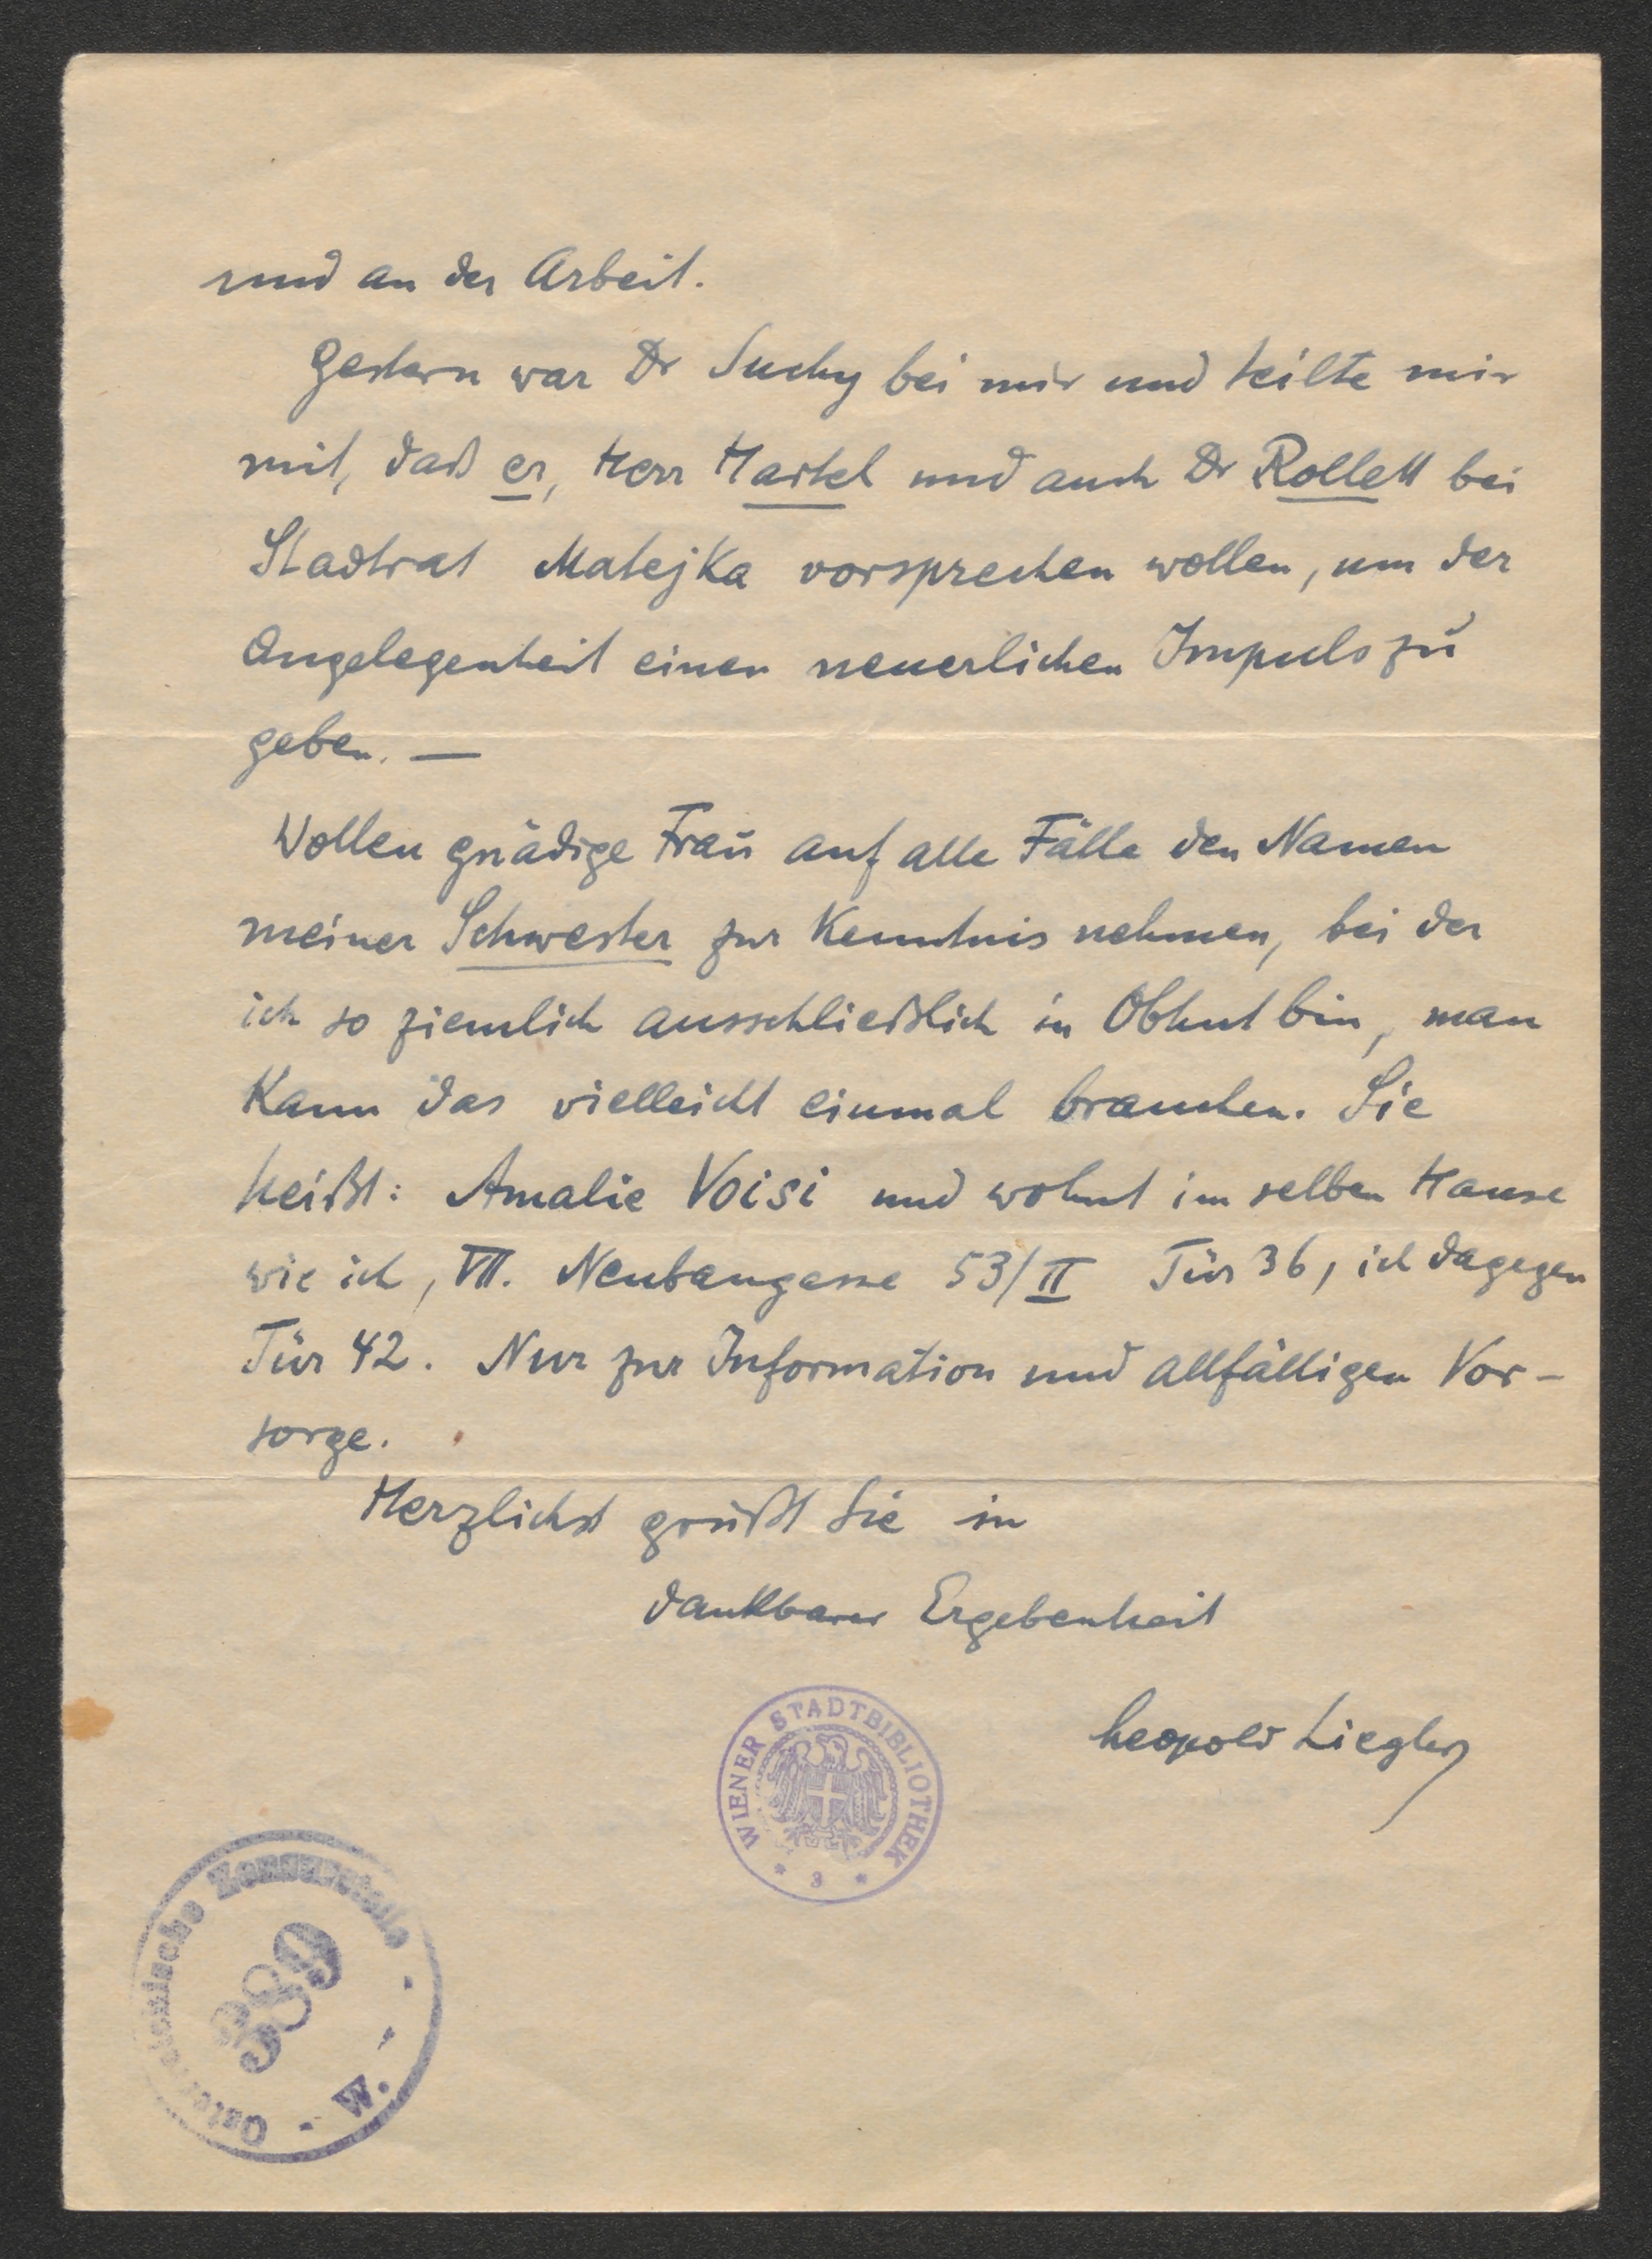 und an der Arbeit.
Gestern war Dr Suchy bei mir und teilte mir
mit, daß er, Herr Hartel und auch Dr Rollett bei
Stadtrat Matejka vorsprechen wollen, um der
Angelegenheit einen neuerlichen Impuls zu
geben. —
Wollen gnädige Frau auf alle Fälle den Namen
meiner Schwester zur Kenntnis nehmen, bei der
ich so ziemlich ausschließlich in Obhut bin, man
kann das vielleicht einmal brauchen. Sie
heißt: Amalie Voisi und wohnt im selben Hause
wie ich, VII. Neubaugasse 53/II Tür 36, ich dagegen
Tür 42. Nur zur Information und allfälligen Vor-
sorge.
Herzlichst grüßt Sie in
dankbarer Ergebenheit
Leopold Liegler
WIENER STADTBIBLIOTHEK
* 3 *
Österreichische Zensurstelle
389
- W. -